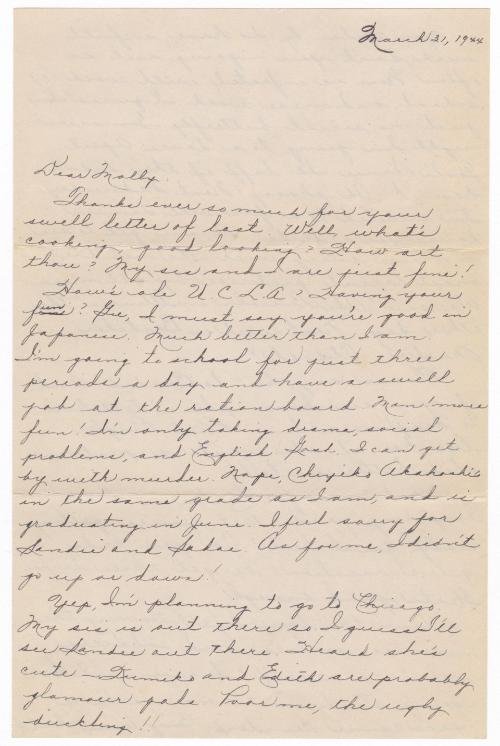 March 31, 1944
Dear Molly,
Thanks ever so much for your
swell letter of last. Well, what's
cooking, good looking? How art
thou? My sis and I are just fine!
How's ole U.C.L.A? Having your
fun? Gee, I must say, you're good in
Japanese. Much better than I am.
I'm going to school for just three
periods a day and have a swell
job at the ration board. Man! more
fun! I'm only taking drama, social
problems, and English. Gad. I can get
by with murder. Nope, Chiyeko Akahoshi's
in the same grade as I am, and is
graduating in June. I feel sorry for
Sandie and Sakae. As for me, I didn't
go up or down!
Yep, I'm planning to go to Chicago.
My sis is out there so I guess I'll
see Sandie out there. Heard she's
cute — Kumiko and Edith are probably
glamour pals. Poor me, the ugly
duckling!!